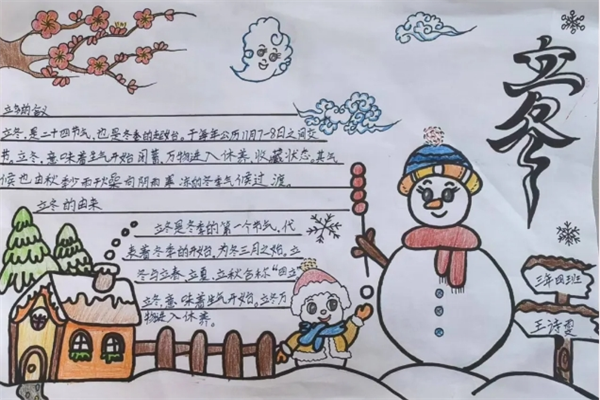 立冬
立冬的含义
立冬,是二十四节气,也是冬季的起始。于每年公历11月7-8日之间交
节。立冬,意味着生气开始闭蓄,万物进入休养、收藏状态。其气
候也由秋季少雨干燥向阴雨寒冻的冬季气候过渡。
立冬的由来
立冬是冬季的第一个节气,代
表着冬季的开始,为冬三月之始。立
冬与立春、立夏、立秋合称"四立"
立冬,意味着生气开始。立冬万
物进入休养。
三年四班
王诗雯